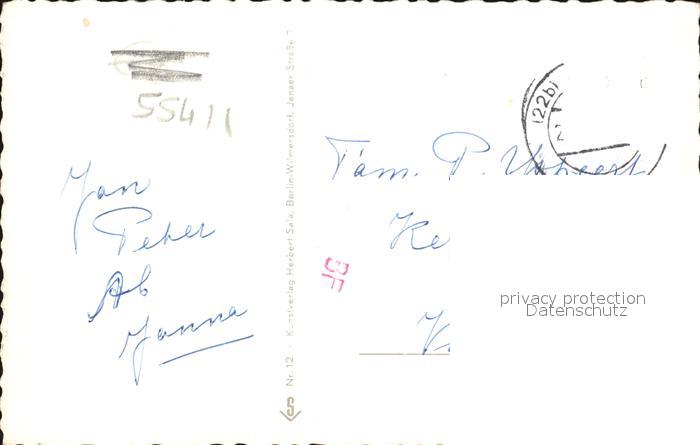 55411
Jan
Peter
Ab
Janna
Nr. 12 · Kunstverlag Herbert Sala, Berlin-Wilmersdorf, Jenaer Straße 7
(22b)
Fam. P.
Ke
K.
BF
privacy protection
Datenschutz